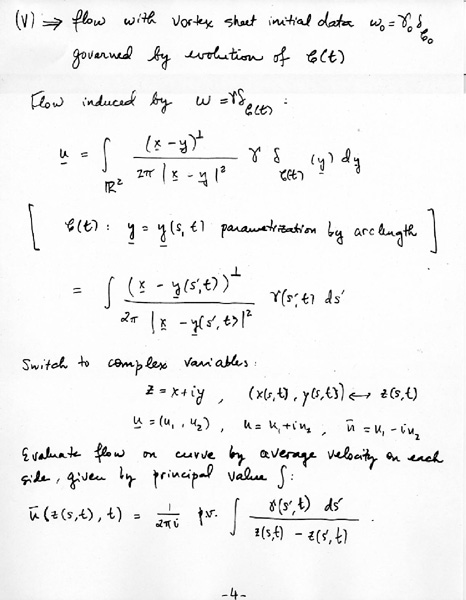 (V) ⇒ flow with vortex sheet initial data ω₀ = γ₀ δ_𝒞₀
governed by evolution of 𝒞(t)
Flow induced by ω = γδ_𝒞(t) :
u = ∫_ℝ² (x - y)^⊥ / 2π |x - y|² γ δ_𝒞(t) (y) dy
[ 𝒞(t) : y = y(s, t) parametrization by arclength ]
= ∫ (x - y(s',t))^⊥ / 2π |x - y(s',t)|² γ(s',t) ds'
Switch to complex variables:
z = x+iy , (x(s,t), y(s,t)) ↔ z(s,t)
u = (u₁, u₂) , u = u₁+iu₂ , ū = u₁-iu₂
Evaluate flow on curve by average velocity on each
side, given by principal value ∫ :
ū(z(s,t), t) = 1/2πi p.v. ∫ γ(s',t) ds' / z(s,t) - z(s',t) .
-4-